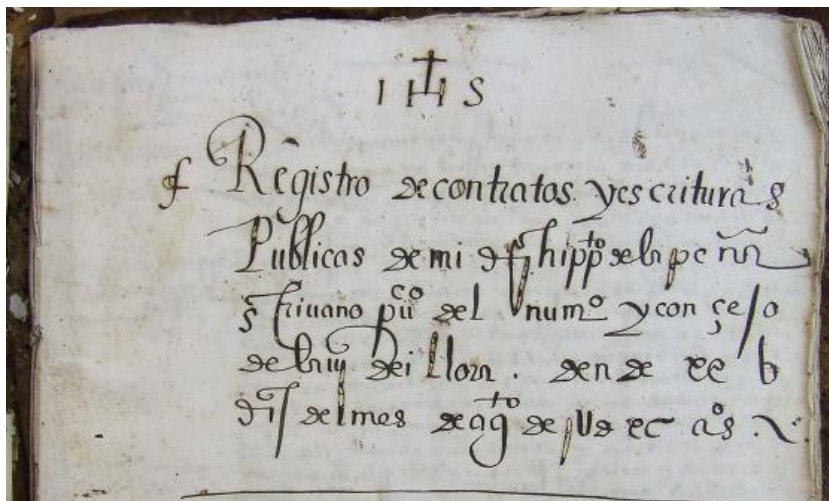 IHS
Registro de contratos y escrituras
Publicas de mi xpoval de la peña
escrivano puco del numo y conçejo
de la va de illora . den de xx b
dias del mes de agto de jUdxc aos .